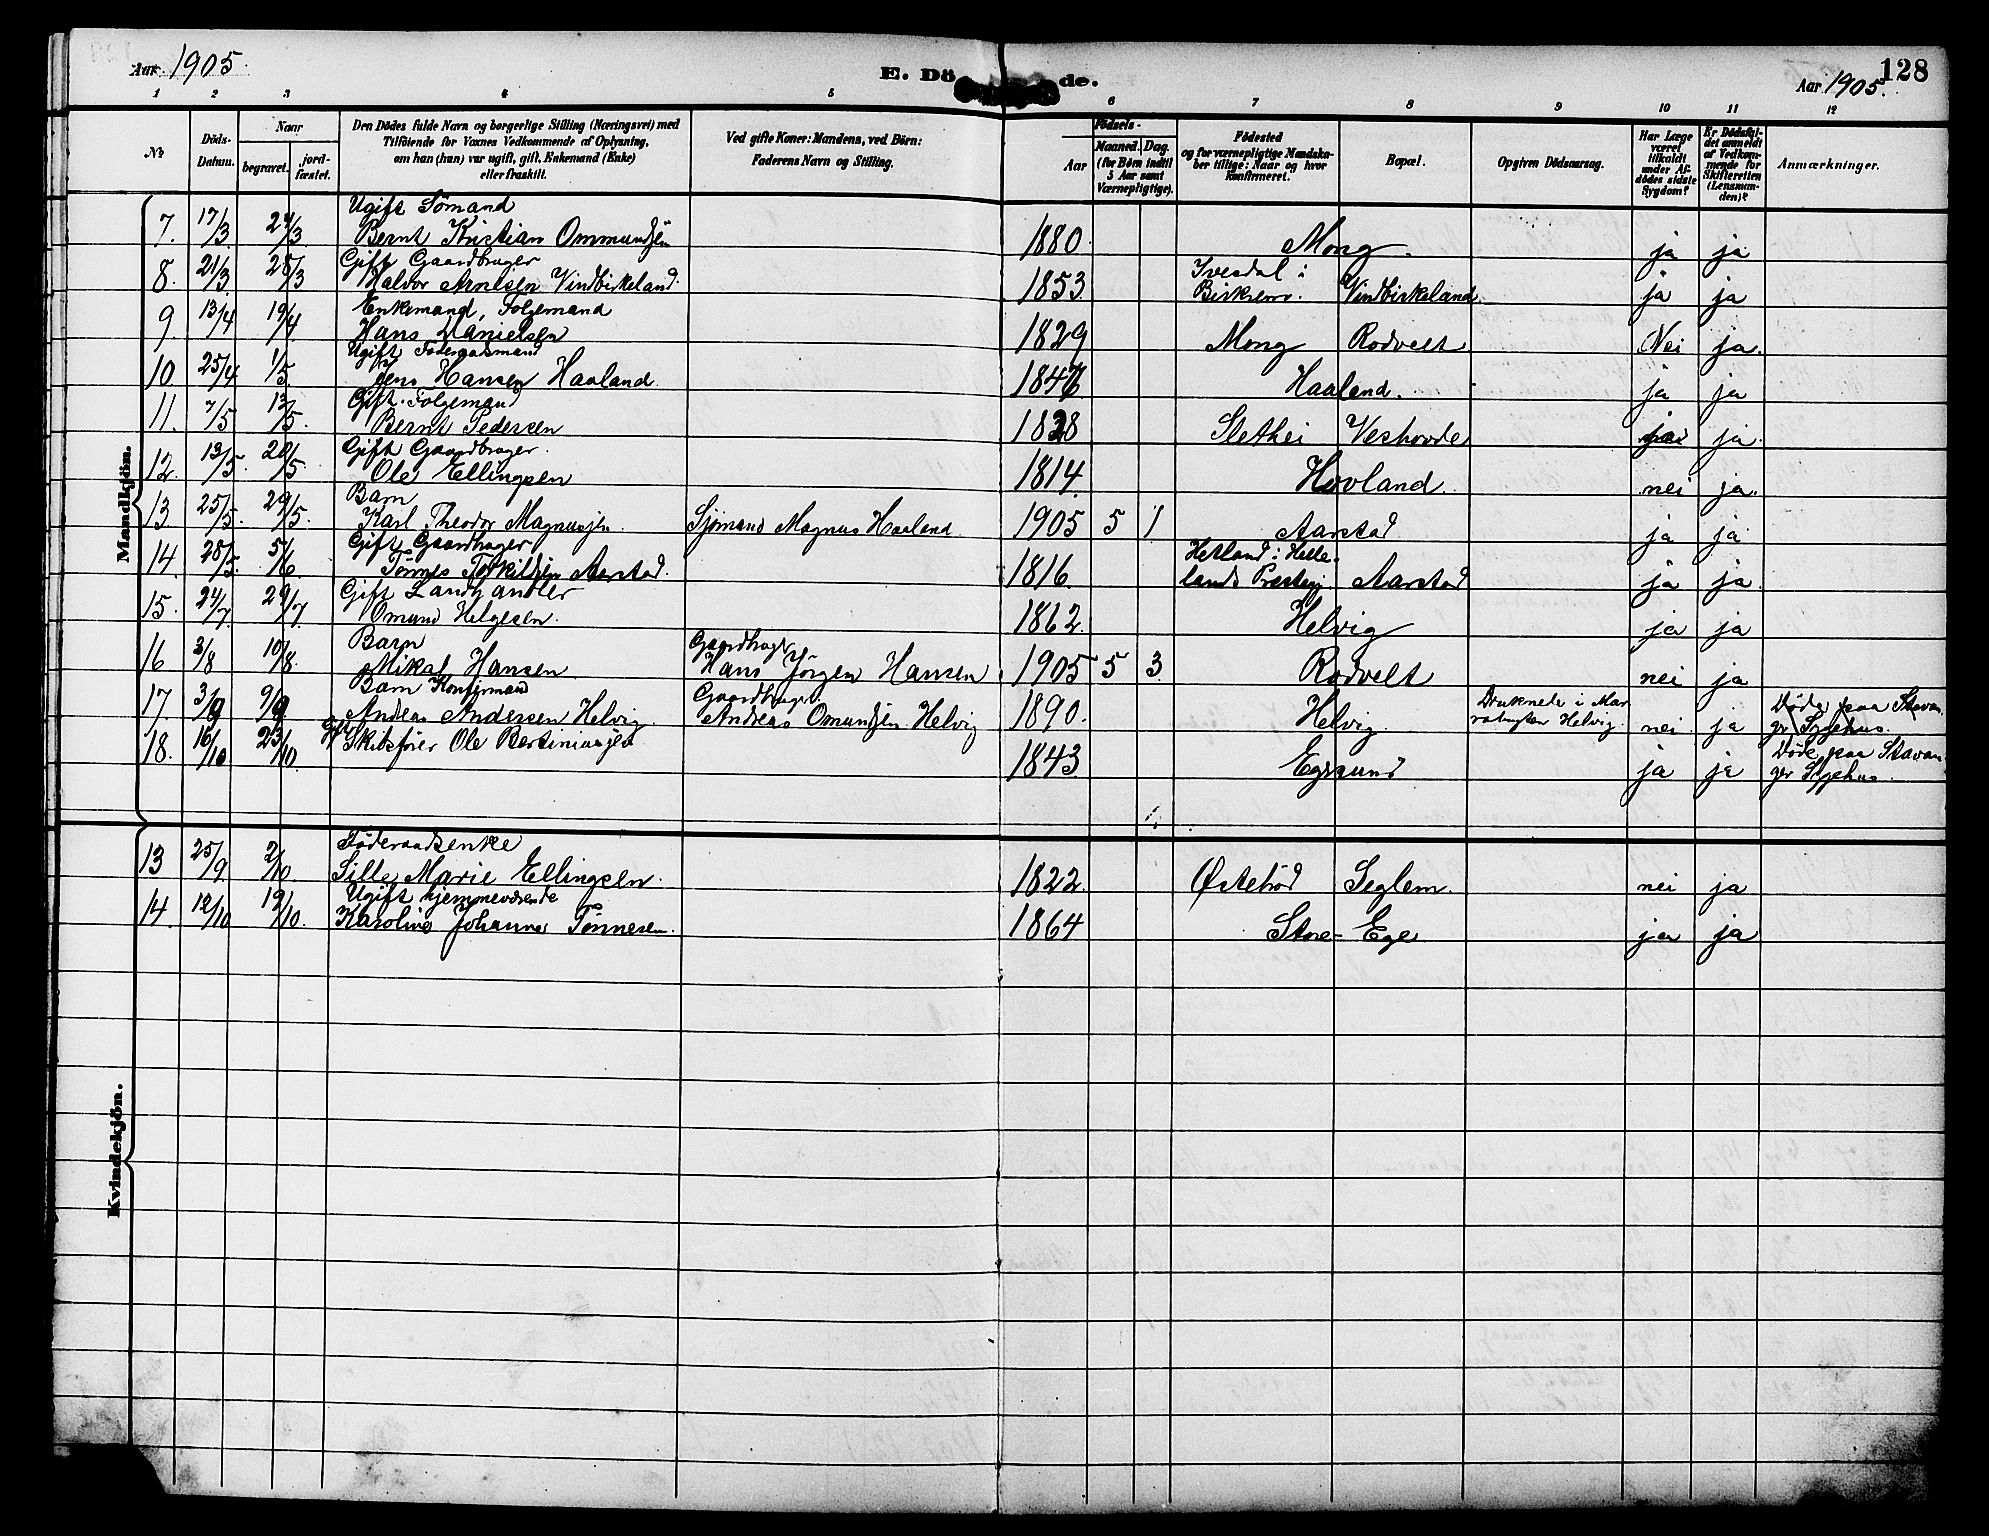 Aar 1905.
E. Dö de.
Aar 1905.
128
1 2 3 4 5 6 7 8 9 10 11 12
№
Döds-Datum.
Naar
begravet.
jord-fæstet.
Den Dödes fulde Navn og borgerlige Stilling (Næringsvei) med
Tilföiende for Voxnes Vedkommende af Oplysning,
om han (hun) var ugift, gift, Enkemand (Enke)
eller fraskilt.
Ved gifte Koner: Mandens, ved Börn:
Faderens Navn og Stilling.
Födsels-
Aar
Maaned. Dag.
(for Börn indtil
5 Aar samt
Værnepligtige).
Födested
og for værnepligtige Mandska-
ber tillige: Naar og hvor
konfirmeret.
Bopæl.
Opgiven Dödsaarsag.
Har Læge
været
tilkaldt
under Af-
dödes sidste
Sygdom?
Er Dödsfal-
det anmeldt
af Vedkom-
mende for
Skifteretten
(Lensman-
den)?
Anmærkninger.
Mandkjön.
Ugift Sømand
7. 17/3 24/3 Bernt Kristian Ommundsen 1880. Mong. ja ja
Gift Gaardbruger
8. 21/3. 28/3 Halvor Arntsen Vindbirkeland. 1853 Ivesdal i Birkrem. Vindbirkeland. ja ja
Enkemand, Folgemand
9. 13/4 19/4 Hans Danielsen 1829 Mong Rodvelt Nei ja.
Ugift Føderaadsmand
10. 25/4 1/5. Jens Hansen Haaland. 1847 Haaland. ja ja
Gift Folgemand
11. 7/5 13/5. Bernt Pedersen 1828 Slethei Veshovde ja.
Gift Gaardbruger.
12. 13/5. 20/5 Ole Ellingsen 1814. Hovland. nei ja.
Barn
13. 25/5. 29/5. Karl Theodor Magnussen. Sjømand Magnus Haaland. 1905 5 1 Aarstad ja ja
Gift Gaardbruger
14. 28/5. 5/6 Tønnes Torkildsen Aarstad. 1816. Hetland i Helle-
lands Præstegj. Aarstad ja ja.
Gift Landhandler
15. 24/7. 29/7 Omund Helgesen. 1862. Helvig ja ja
Barn Gaardbruger
16 3/8 10/8. Mikal Hansen Hans Jørgen Hansen 1905 5 3 Rodvelt nei ja
Barn Konfirmand Gaardbruger
17. 3/9 9/9 Andreas Andersen Helvig Andreas Omundsen Helvig 1890. Helvig. Druknede i
Helvig. nei ja Døde paa Stavan-
ger Sygehus.
18. 16/10 23/10. Skibsfører Ole Bertiniussen 1843 Egersund ja ja Døde paa Stavan-
ger Sygehus.
Kvindekjön.
Føderaadsenke
13 25/9 2/10. Sille Marie Ellingsen. 1822. Østebrød Seglem. nei ja
Ugift hjemmeværende
14. 12/10 19/10. Karoline Johanne Tønnesen. 1864 Store- Ege ja ja